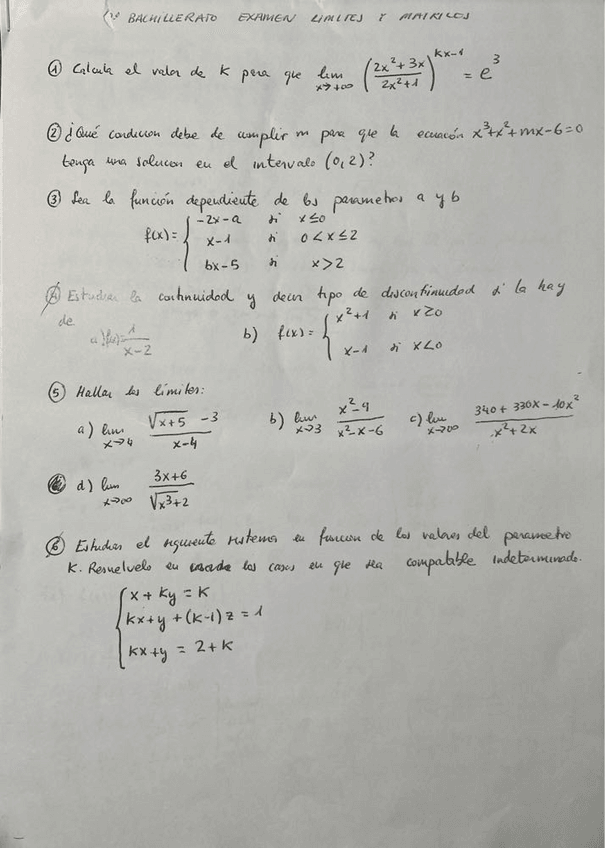 1º BACHILLERATO EXAMEN LIMITES Y MATRICES
① Calcula el valor de K para que lim x→+∞ ((2x²+3x)/(2x²+1))^(kx-1) = e³
② ¿Qué condición debe de cumplir m para que la ecuación x³+x²+mx-6=0
tenga una solucion en el intervalo (0,2)?
③ Sea la función dependiente de los parametros a y b
f(x)= { -2x-a si x≤0
x-1 si 0<x≤2
bx-5 si x>2
④ Estudiar la continuidad y decir tipo de discontinuidad si la hay
de
a) f(x)=1/(x-2) b) f(x)= { x²+1 si x≥0
x-1 si x<0
⑤ Hallar los límites:
a) lim x→4 (√(x+5) -3)/(x-4) b) lim x→3 (x²-9)/(x²-x-6) c) lim x→∞ (340+330x-10x²)/(x²+2x)
d) lim x→∞ (3x+6)/(√(x³)+2)
⑥ Estudiar el siguiente sistema en funcion de los valores del parametro
K. Resuelvelo en los casos en que sea compatible indeterminado.
{ x+ky=k
kx+y+(k-1)z=1
kx+y = 2+k